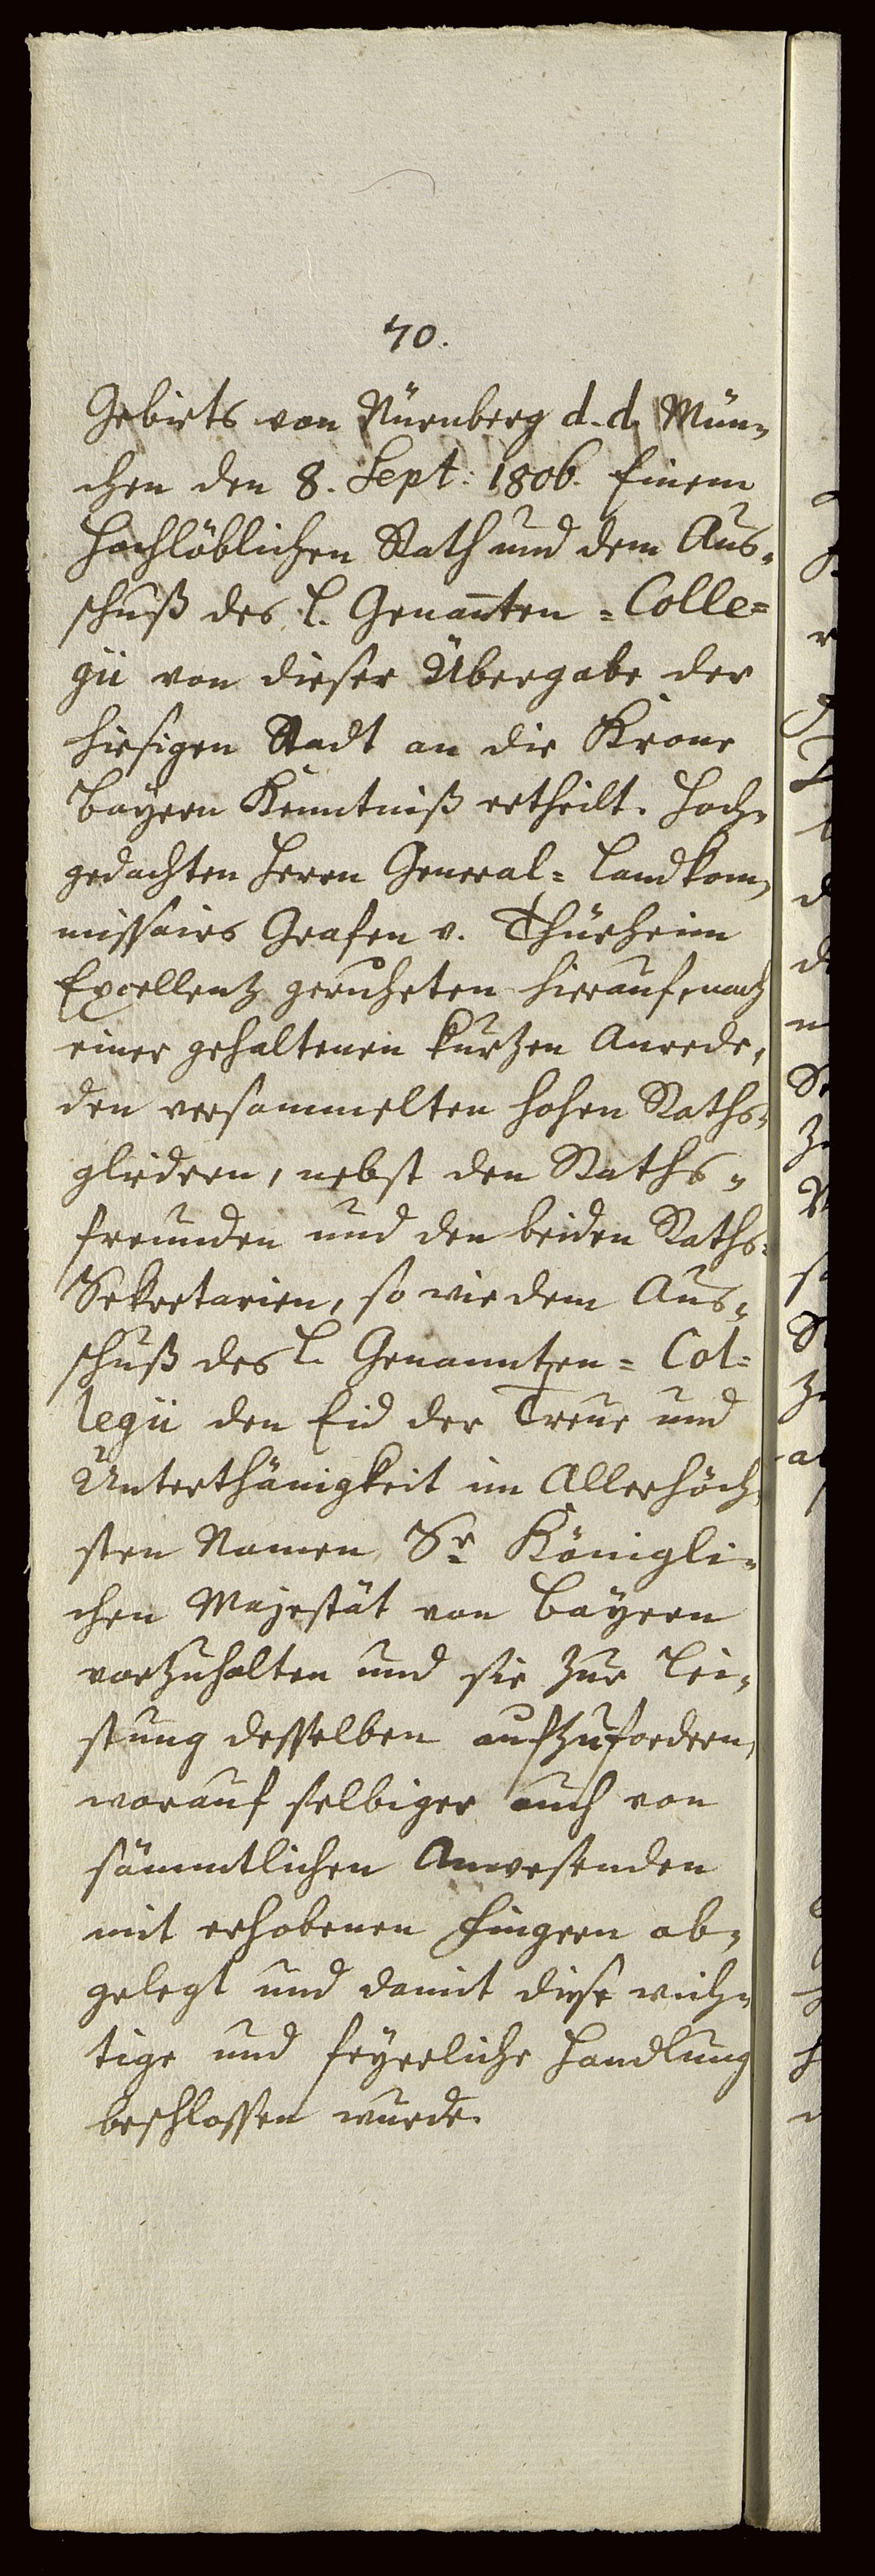 70.
Gebiets von Nürnberg d. d. Mün-
chen den 8. Sept: 1806. Einem
Hochlöblichen Rath und dem Aus-
schuß des l. Genan̄ten = Colle=
gii von dieser Übergabe der
hiesigen Stadt an die Krone
Bayern Kenntniß ertheilt. Hoch-
gedachten Herrn General= Landkom-
missairs Grafen v. Thürheim
Excellentz geruheten hierauf, nach
einer gehaltenen kurzen Anrede,
den versammelten hohen Raths-
gliedern, nebst den Raths-
freunden und den beiden Raths-
Sekretarien, so wie dem Aus-
schuß des l. Genannten = Col=
legii den Eid der Treue und
Unterthänigkeit im Allerhöch-
sten Namen Sr Königli-
chen Majestät von Bayern
vorzuhalten und sie zur Lei-
stung desselben aufzufordern,
worauf selbiger auch von
sämmtlichen Anwesenden
mit erhobenen Fingern ab-
gelegt und damit diese wich-
tige und feyerliche Handlung
beschlossen wurde.